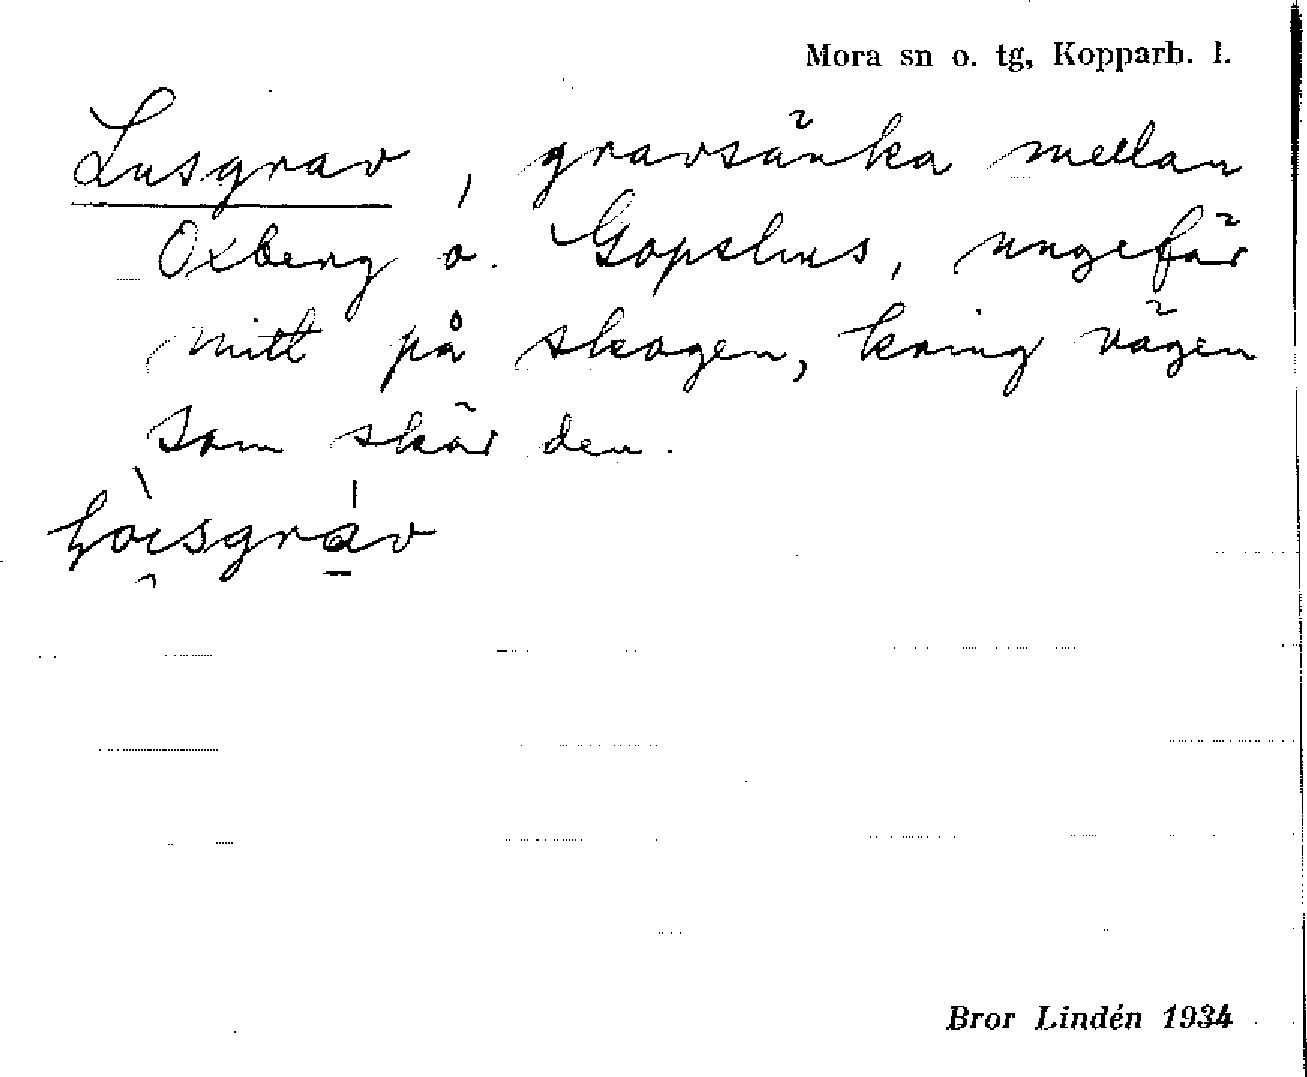 Mora sn o. tg, Kopparb. l.
Lusgrav, gravsänka mellan
Oxberg o. Gopshus, ungefär
mitt på skogen, kring vägen
som skär den.
Bror Lindén 1934